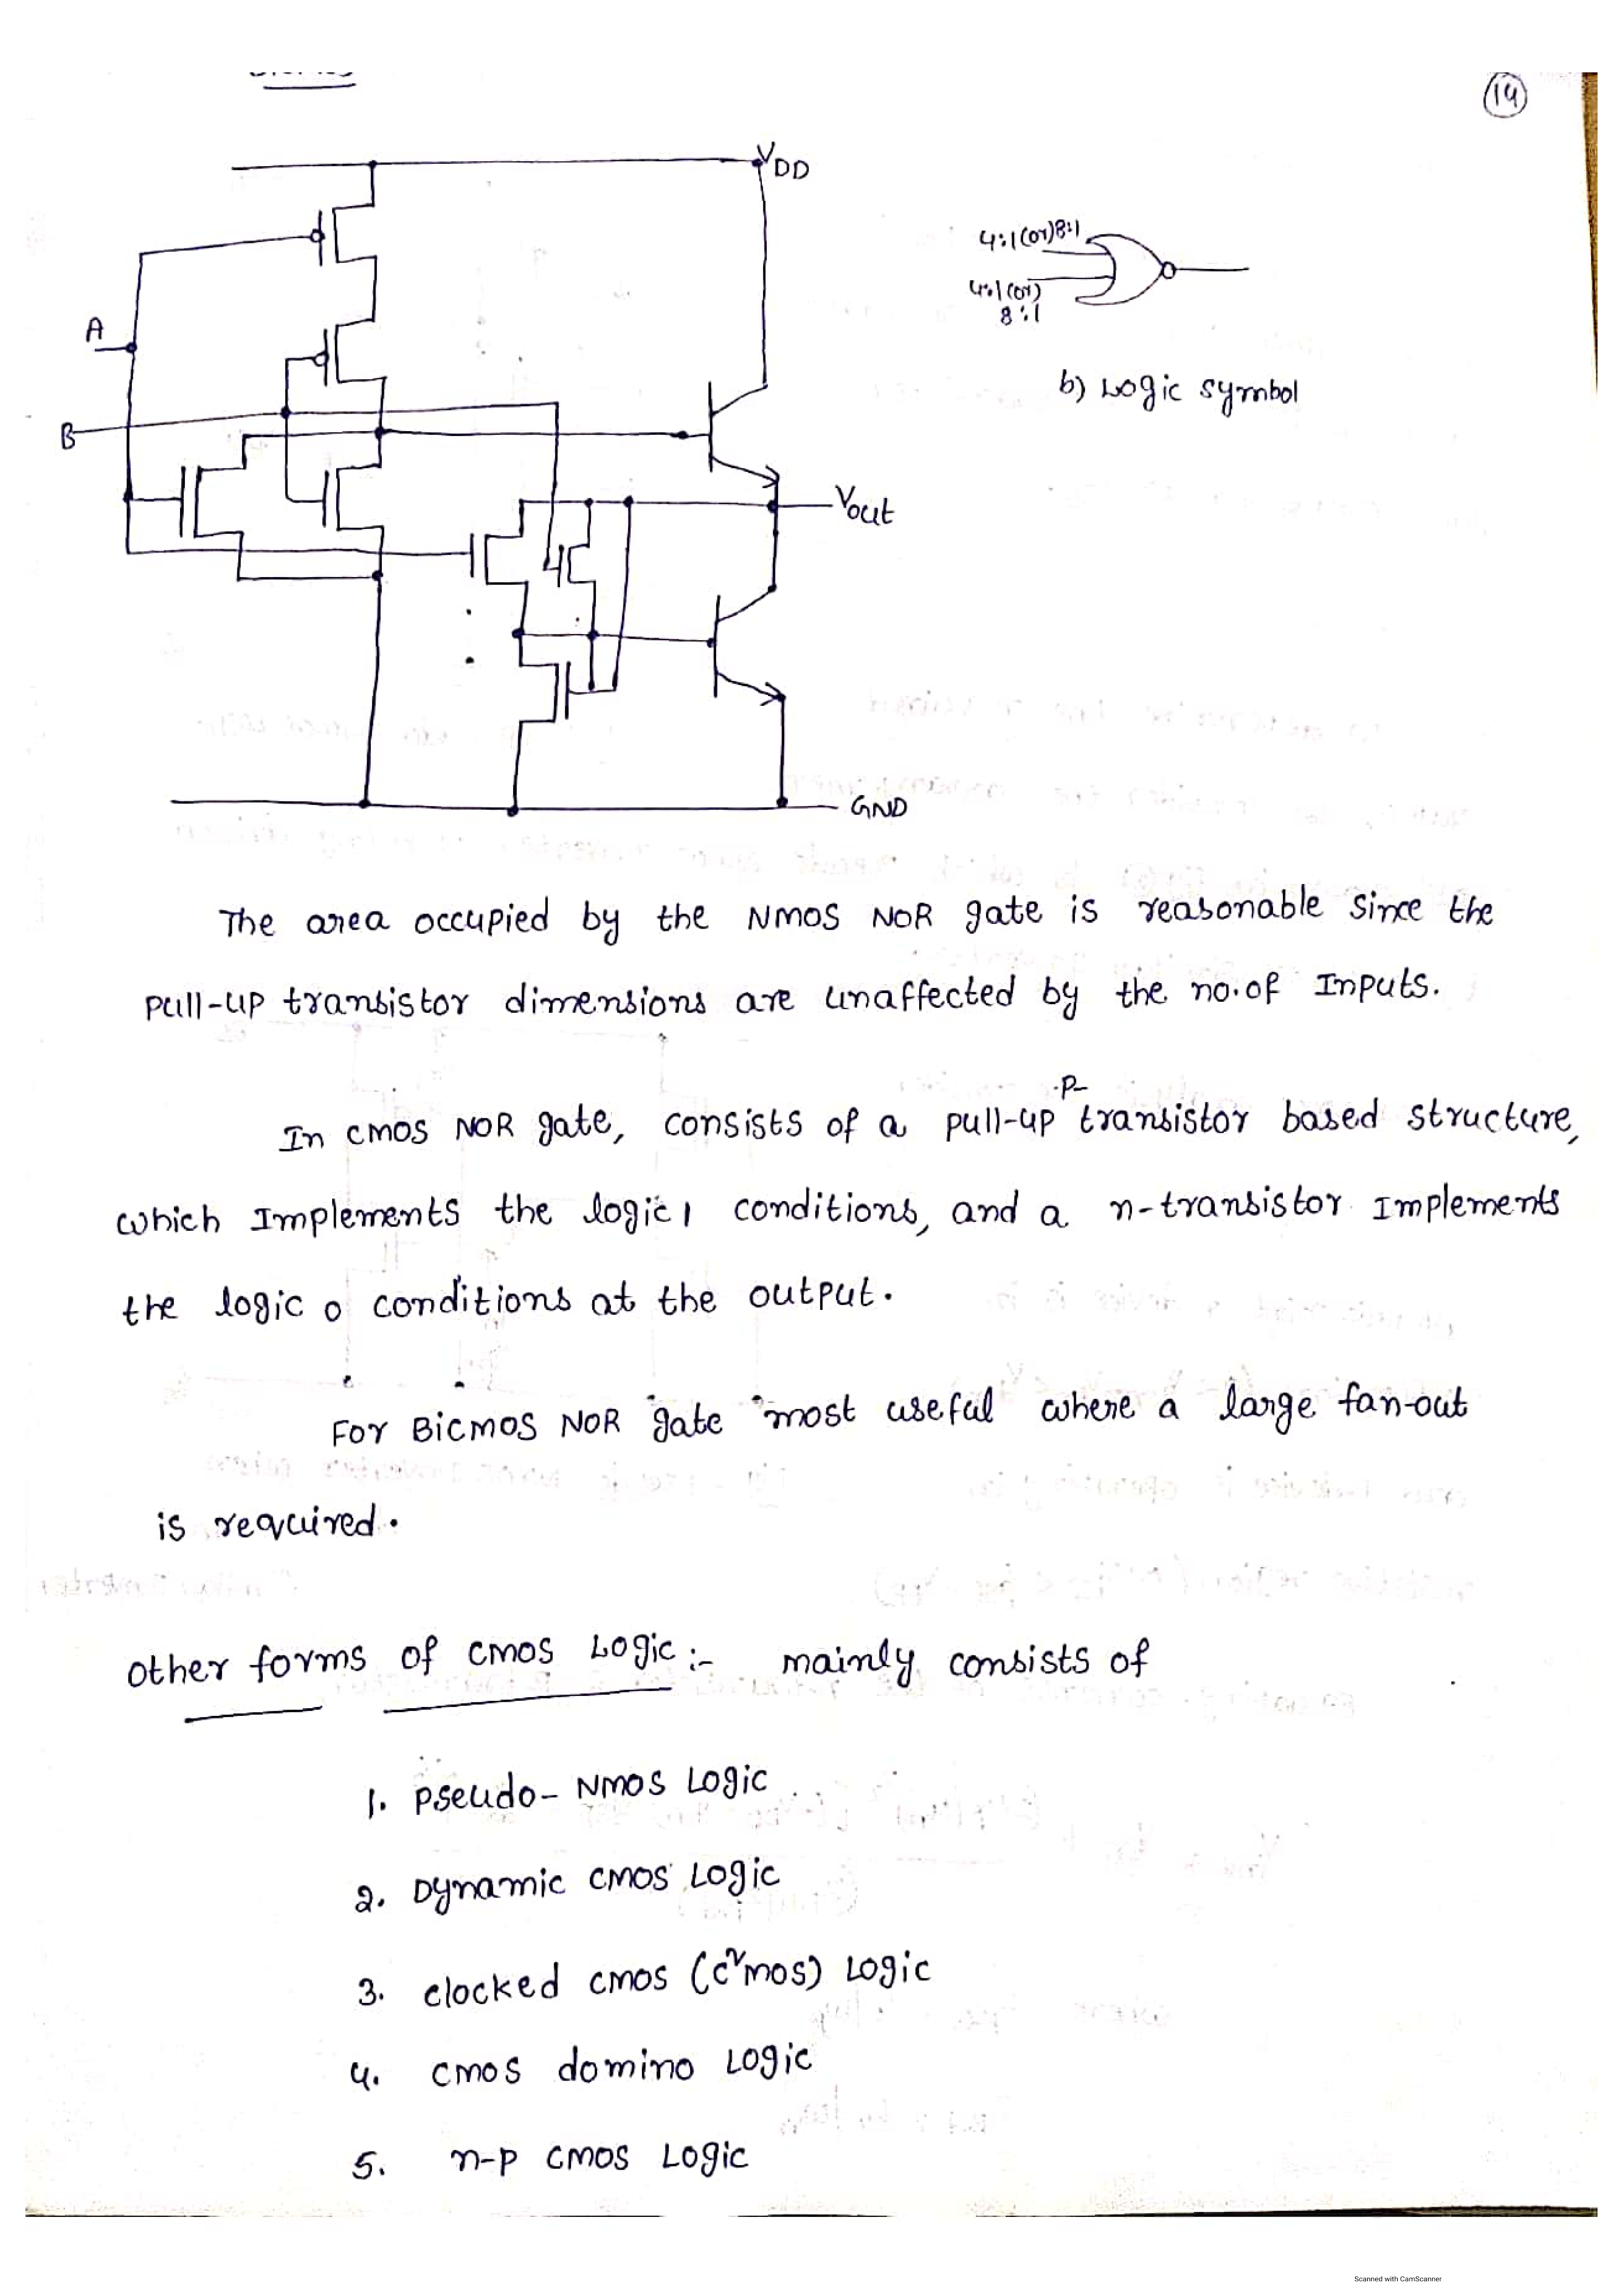 14
VDD
4:1(or)8:1
4:1(or)
8:1
A
b) Logic symbol
B
Vout
GND
The area occupied by the NMOS NOR gate is reasonable since the
pull-up transistor dimensions are unaffected by the no.of Inputs.
In CMOS NOR gate, consists of a pull-up p- transistor based structure,
which Implements the logic 1 conditions, and a n-transistor Implements
the logic 0 conditions at the output.
For BiCMOS NOR gate most useful where a large fan-out
is required.
Other forms of CMOS Logic :- mainly consists of
1. Pseudo-NMOS Logic
2. Dynamic CMOS Logic
3. clocked CMOS (C²MOS) Logic
4. CMOS domino Logic
5. n-p CMOS Logic
Scanned with CamScanner